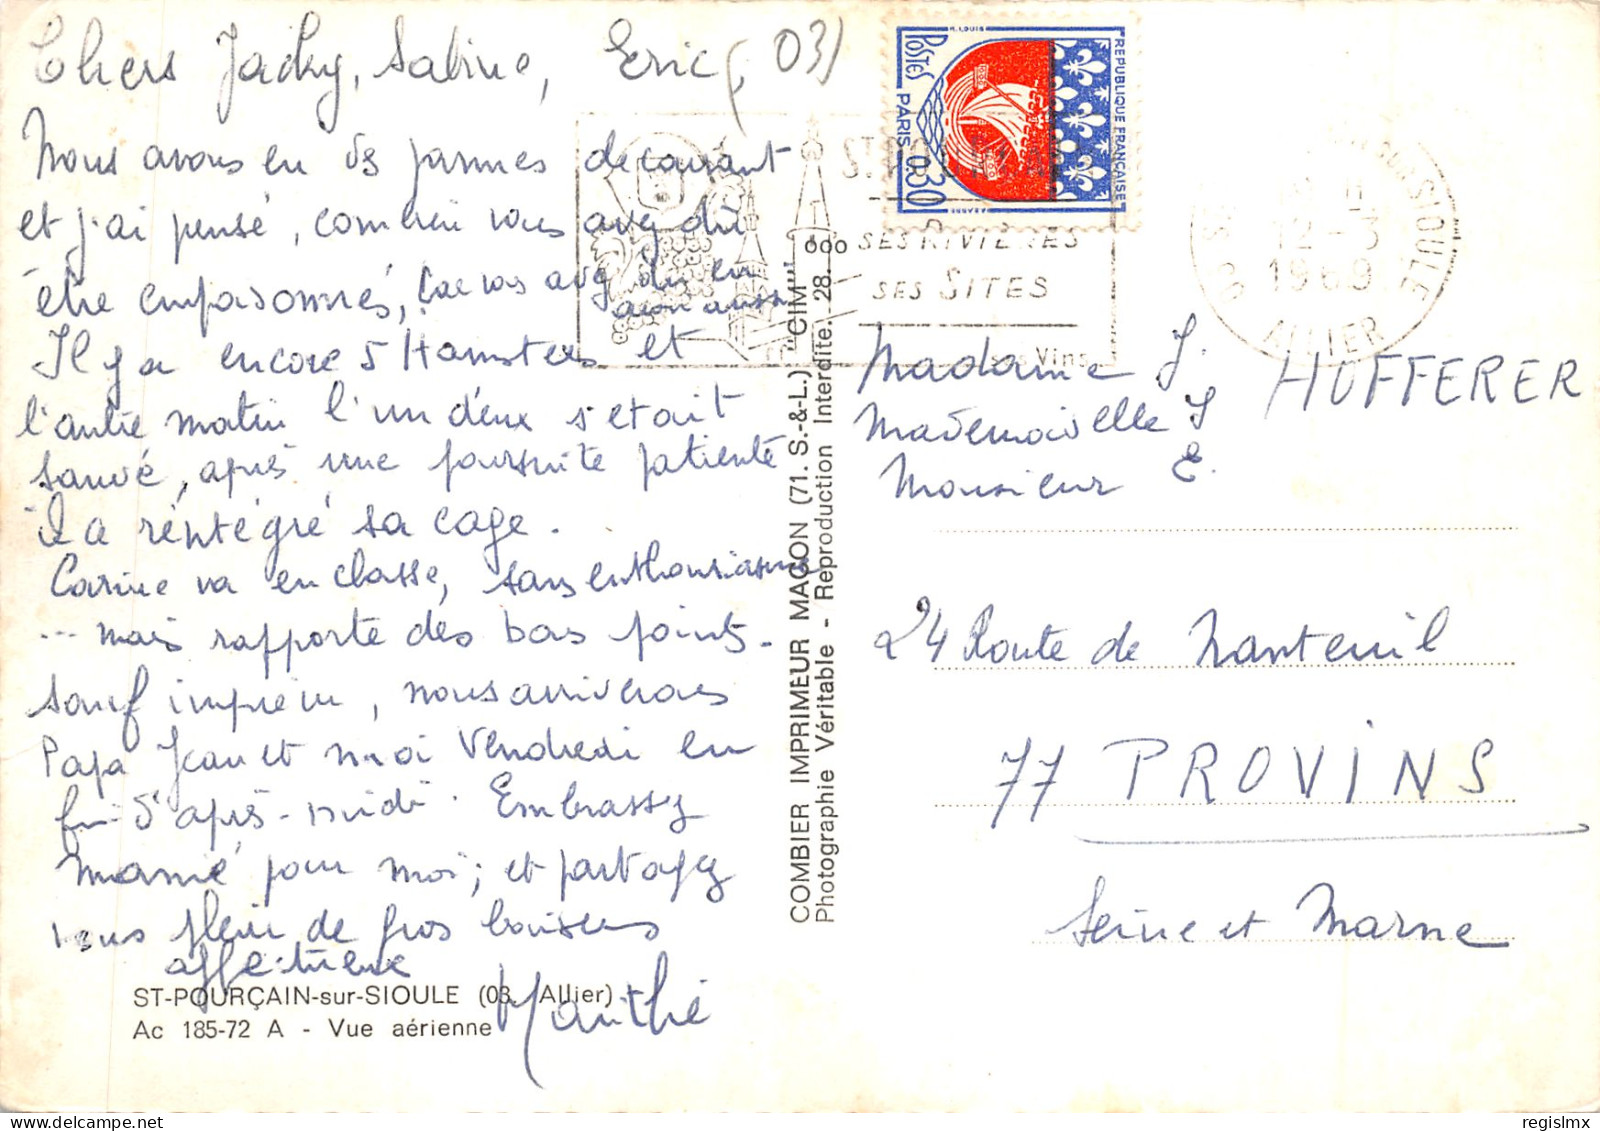 Chers Jacky, Sabine, Eric, (03)
Nous avons eu des pannes de courant
et j'ai pensé, combien vous avez dû
être empoisonnés, car vous avez dû en
avoir aussi
Il y a encore 5 Hamsters et
l'autre matin l'un d'eux s'était
sauvé, après une poursuite patiente
Il a réintégré sa cage.
Carine va en classe, sans enthousiasme
... mais rapporte des bons points.
sauf imprévu, nous arriverons
Papa Jean et moi Vendredi en
fin d'après-midi. Embrassez
mamie pour moi; et partagez
vous plein de gros baisers
affectueux
Marthe
ST-POURÇAIN-sur-SIOULE (03. Allier)
Ac 185-72 A - Vue aérienne
COMBIER IMPRIMEUR MACON (71. S.-&-L.) "CIM"
Photographie Véritable - Reproduction Interdite. 28.
H. LOUIS
POSTES
PARIS
0,30
REPUBLIQUE FRANÇAISE
SES RIVIÈRES
SES SITES
Vins
SIOULE
12-3
1969
ALLIER
Madame J. HUFFERER
Mademoiselle S
Monsieur E.
24 Route de Nanteuil
77 PROVINS
Seine et Marne
regislmx